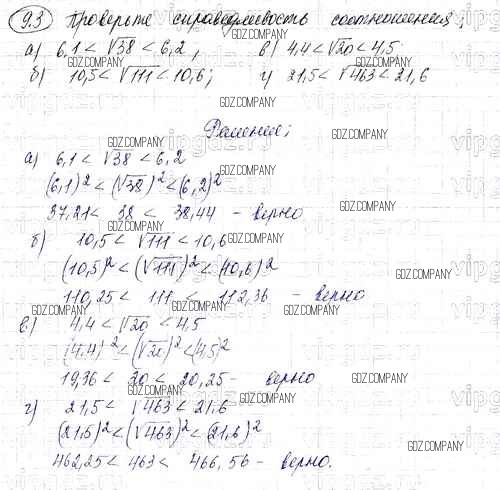 9.3 Проверьте справедливость соотношения;
а) 6,1 < √38 < 6,2, в) 4,4 < √20 < 4,5.
б) 10,5 < √111 < 10,6; г) 21,5 < √463 < 21,6
Решение;
а) 6,1 < √38 < 6,2
(6,1)² < (√38)² < (6,2)²
37,21 < 38 < 38,44 - верно
б) 10,5 < √111 < 10,6
(10,5)² < (√111)² < (10,6)²
110,25 < 111 < 112,36 - верно
в) 4,4 < √20 < 4,5
(4.4)² < (√20)² < (4,5)²
19,36 < 20 < 20,25 - верно
г) 21,5 < √463 < 21,6
(21,5)² < (√463)² < (21,6)²
462,25 < 463 < 466,56 - верно.